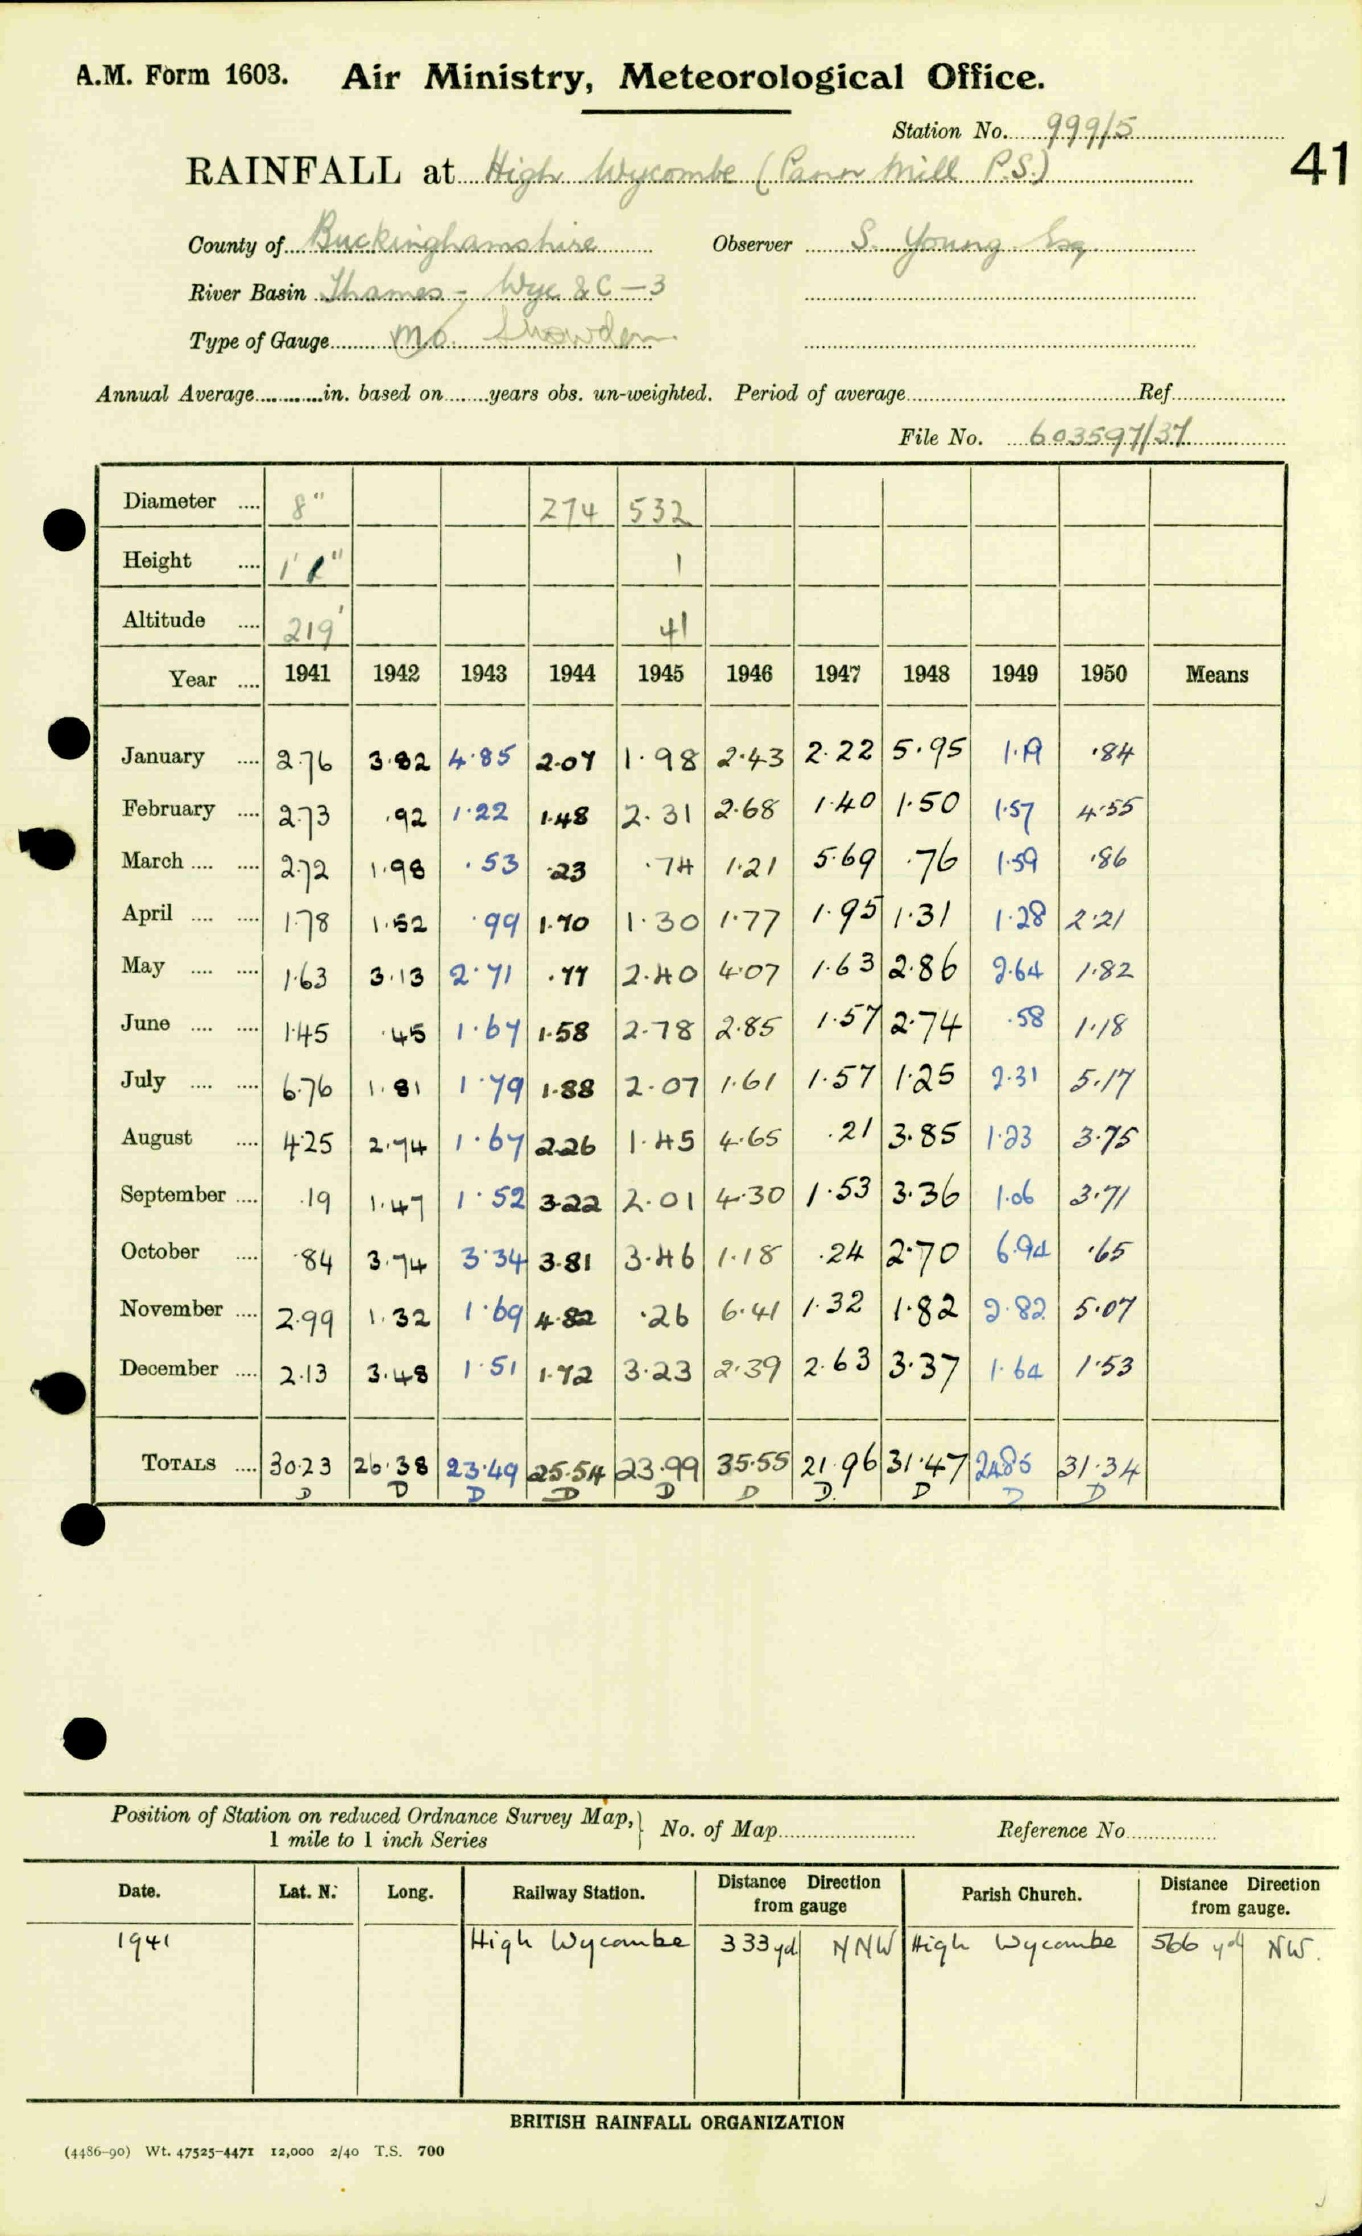 A.M. Form 1603. Air Ministry, Meteorological Office.
Station No. 999/5
41
RAINFALL at High Wycombe (Pann Mill P.S.)
County of Buckinghamshire Observer S. Young Esq
River Basin Thames - Wye &C - 3
Type of Gauge Mo. Snowdon
Annual Average in. based on years obs. un-weighted. Period of average Ref
File No. 603597/37
Diameter 8" 274 532
Height 1' 1
Altitude 219' 41
Year 1941 1942 1943 1944 1945 1946 1947 1948 1949 1950 Means
January 2.76 3.82 4.85 2.07 1.98 2.43 2.22 5.95 1.19 .84
February 2.73 .92 1.22 1.48 2.31 2.68 1.40 1.50 1.57 4.55
March 2.72 1.98 .53 .23 .74 1.21 5.69 .76 1.59 .86
April 1.78 1.52 .99 1.70 1.30 1.77 1.95 1.31 1.28 2.21
May 1.63 3.13 2.71 .77 2.40 4.07 1.63 2.86 2.64 1.82
June 1.45 .45 1.67 1.58 2.78 2.85 1.57 2.74 .58 1.18
July 6.76 1.81 1.79 1.88 2.07 1.61 1.57 1.25 2.31 5.17
August 4.25 2.74 1.67 2.26 1.45 4.65 .21 3.85 1.23 3.75
September .19 1.47 1.52 3.22 2.01 4.30 1.53 3.36 1.06 3.71
October .84 3.74 3.34 3.81 3.46 1.18 .24 2.70 6.94 .65
November 2.99 1.32 1.69 4.82 .26 6.41 1.32 1.82 2.82 5.07
December 2.13 3.48 1.51 1.72 3.23 2.39 2.63 3.37 1.64 1.53
TOTALS 30.23 26.38 23.49 25.54 23.99 35.55 21.96 31.47 24.85 31.34
D D D D D D D. D D D
Position of Station on reduced Ordnance Survey Map, 1 mile to 1 inch Series } No. of Map Reference No
Date. Lat. N. Long. Railway Station. Distance Direction from gauge Parish Church. Distance Direction from gauge.
1941 High Wycombe 333 yd NNW High Wycombe 566 yd NW.
BRITISH RAINFALL ORGANIZATION
(4486-90) Wt. 47525-4471 12,000 2/40 T.S. 700